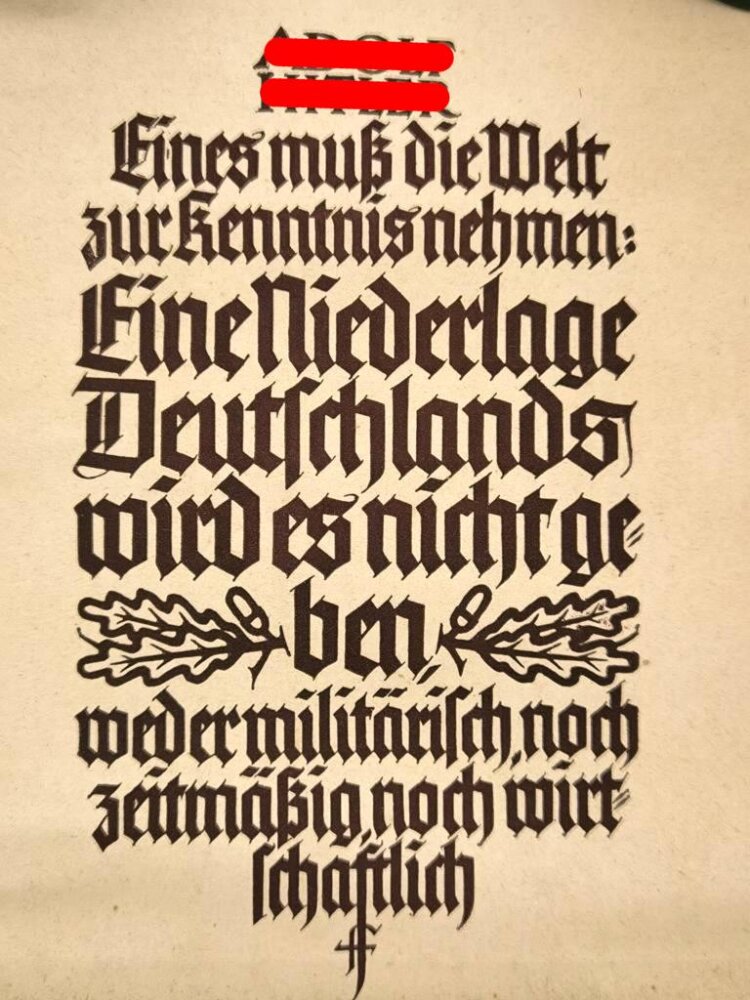 ADOLF
HITLER
Eines muß die Welt
zur Kenntnis nehmen:
Eine Niederlage
Deutſchlands
wird es nicht ge-
ben,
weder militäriſch, noch
zeitmäßig, noch wirt-
ſchaftlich